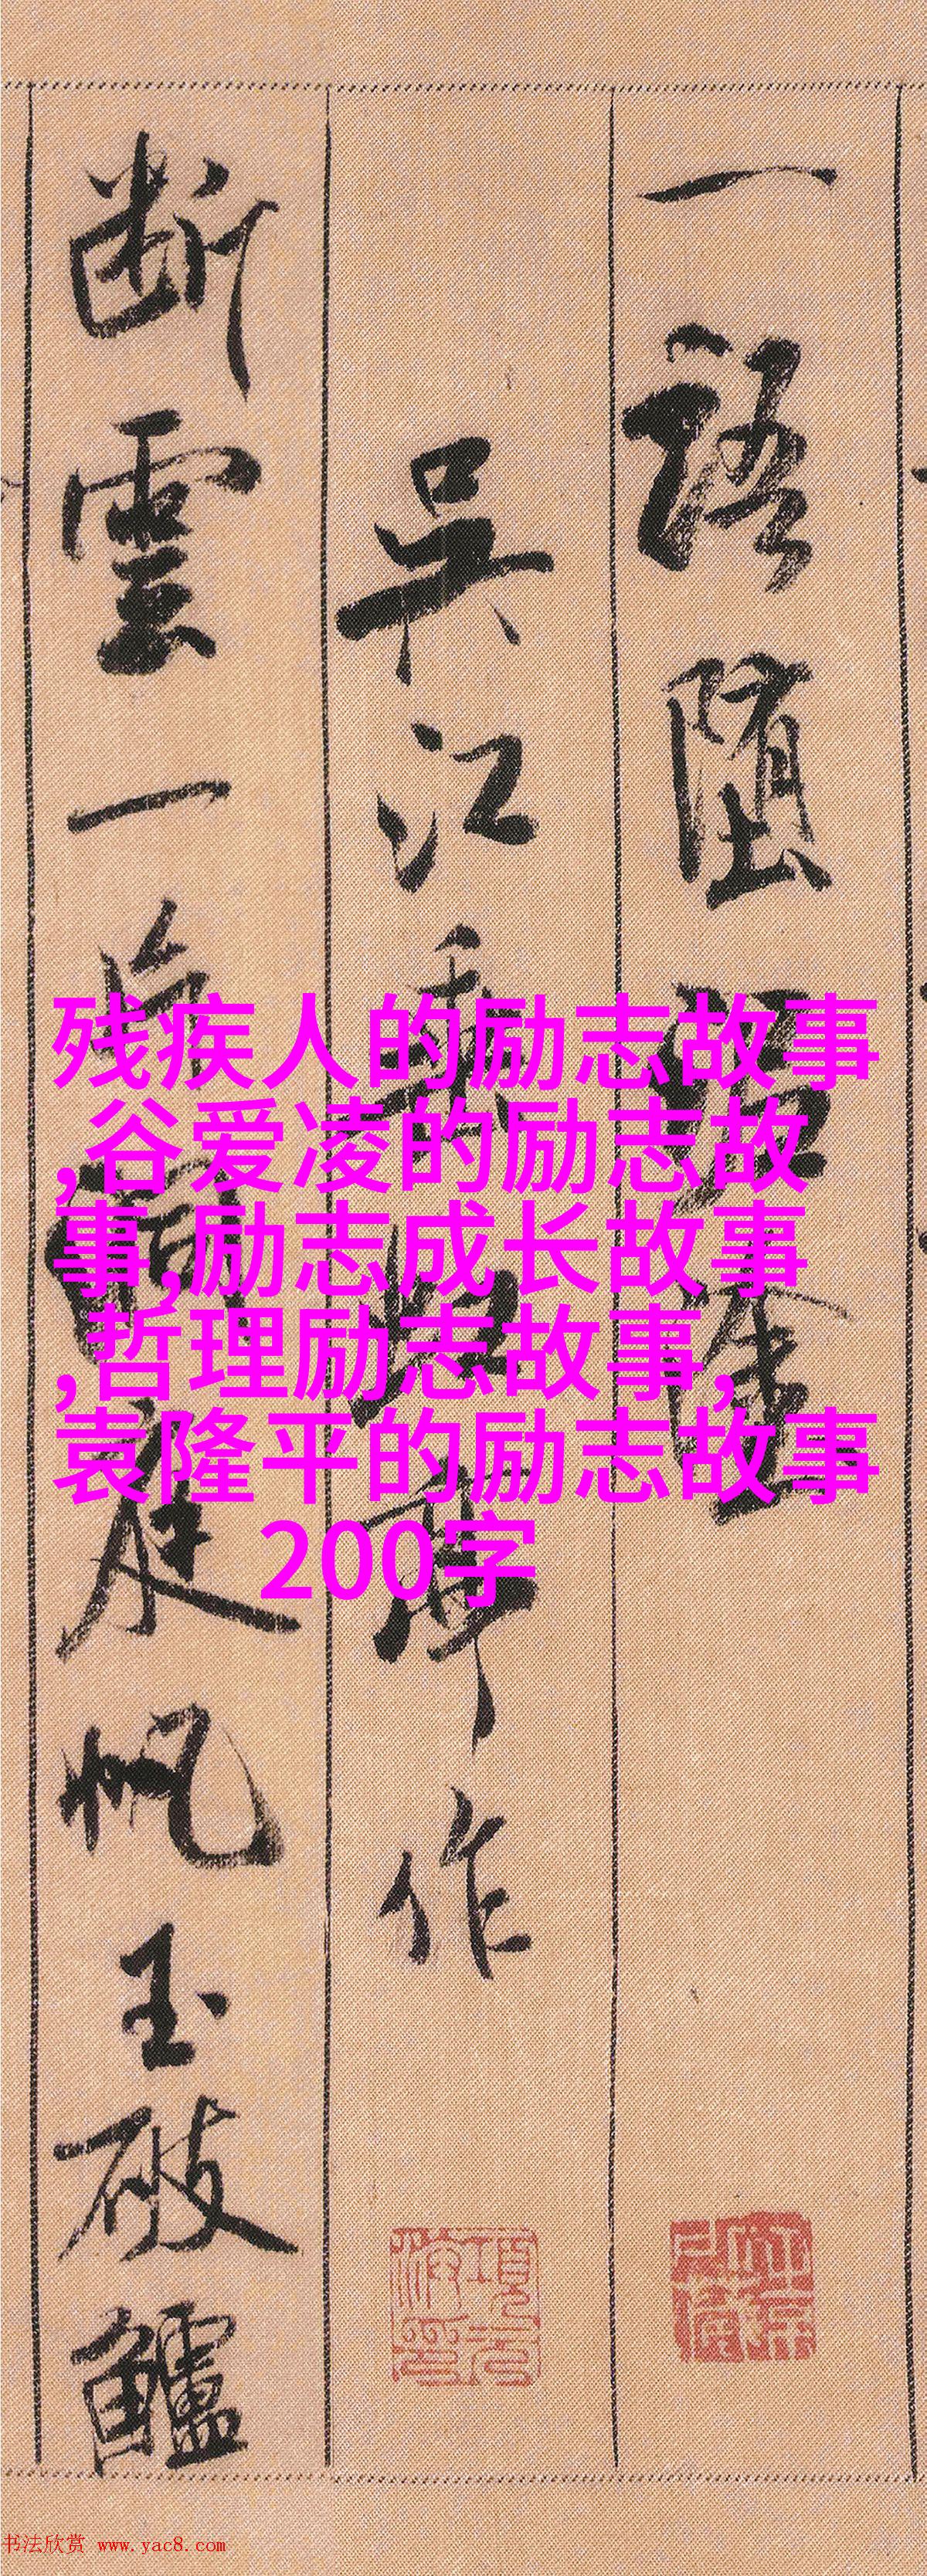 一語墮泥塗
吳江垂虹亭作
斷雲一片洞庭帆玉破鱸
残疾人的励志故事
,谷爱凌的励志故
事,励志成长故事
,哲理励志故事,
袁隆平的励志故事
200字
书法欣赏 www.yac8.com